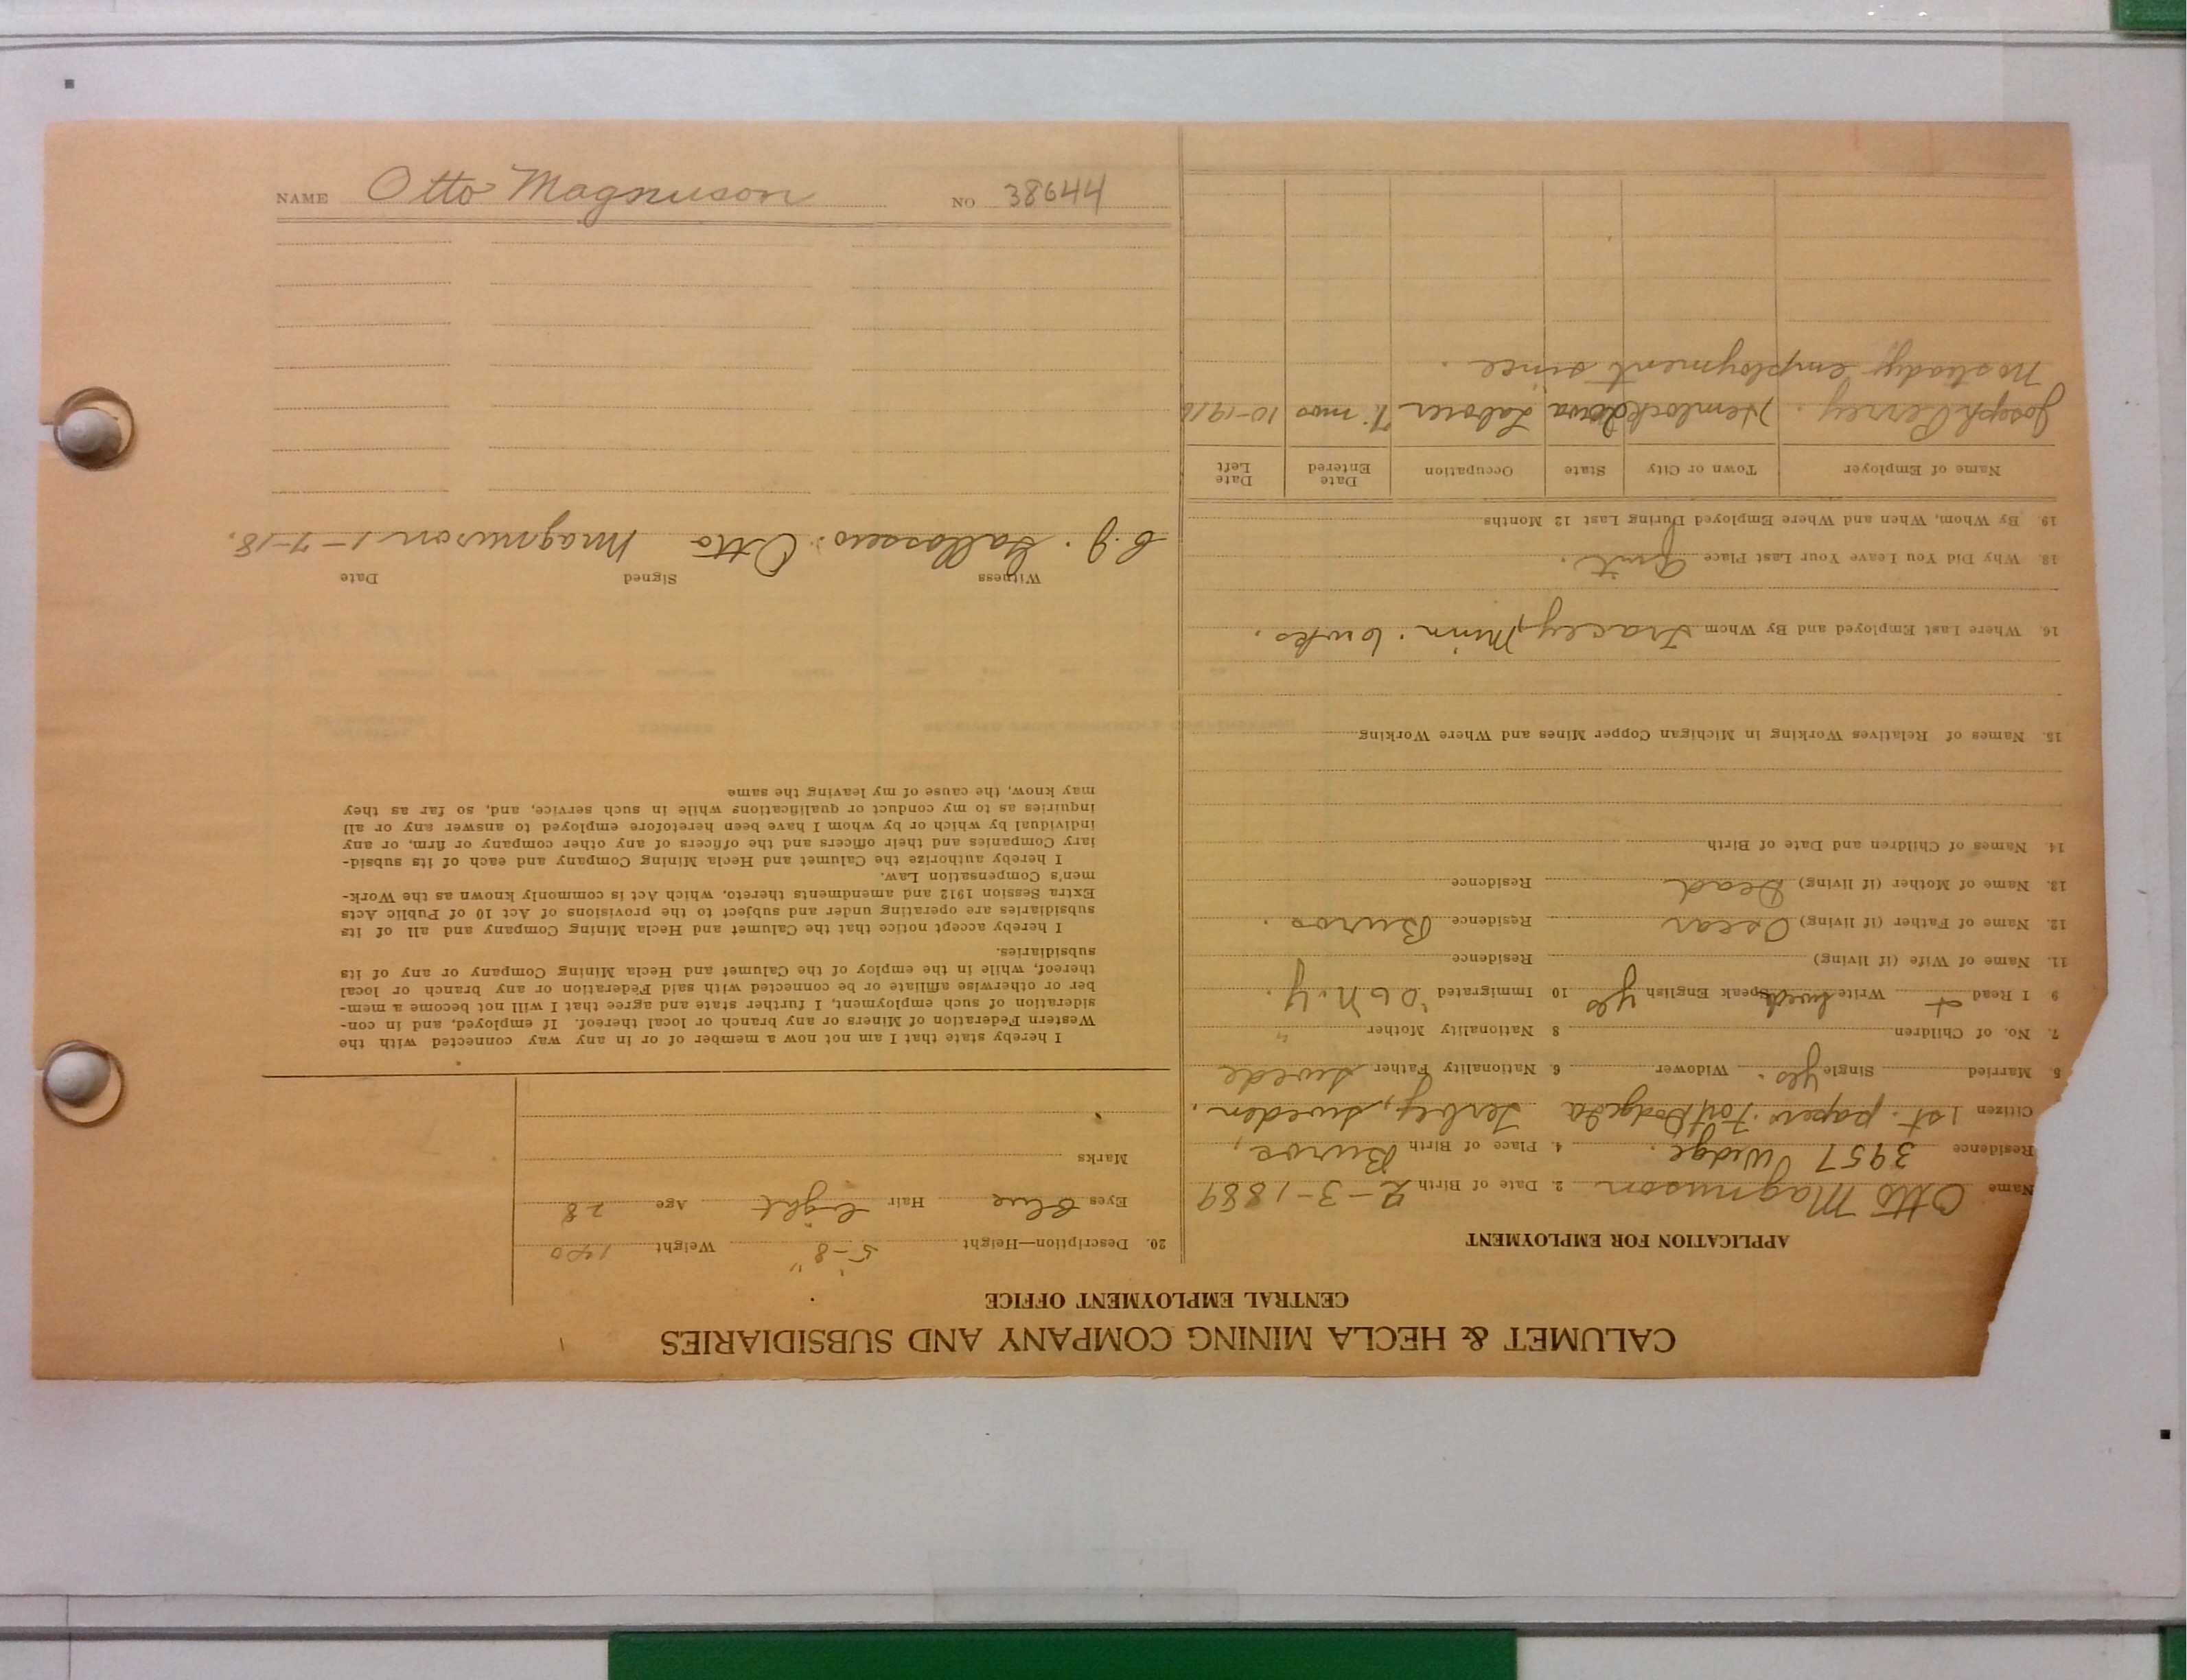 CALUMET & HECLA MINING COMPANY AND SUBSIDIARIES
CENTRAL EMPLOYMENT OFFICE
APPLICATION FOR EMPLOYMENT
Name Otto Magnuson 2. Date of Birth 2-3-1889
Residence 3957 Wedge. 4. Place of Birth
Citizen 1st. papers. Fort Dodge Ia Sweden.
5. Married Single yes. Widower 6. Nationality Father Swede
7. No. of Children 8 Nationality Mother "
9 I Read + Write Swede Speak English yes 10 Immigrated '06 N.Y.
11. Name of Wife (if living) Residence
12. Name of Father (if living) Oscar Residence
13. Name of Mother (if living) Dead Residence
14. Names of Children and Date of Birth
15. Names of Relatives Working in Michigan Copper Mines and Where Working
16. Where Last Employed and By Whom Tracey, Minn. 6 wks.
18. Why Did You Leave Your Last Place Quit.
19. By Whom, When and Where Employed During Last 12 Months
Name of Employer Town or City State Occupation Date Entered Date Left
Joseph Perrey. Hemlock Iowa Laborer 7. mos 10-1916
No steady employment since.
20. Description—Height 5'-8" Weight 140
Eyes Blue Hair Light Age 28
Marks
I hereby state that I am not now a member of or in any way connected with the
Western Federation of Miners or any branch or local thereof. If employed, and in con-
sideration of such employment, I further state and agree that I will not become a mem-
ber or otherwise affiliate or be connected with said Federation or any branch or local
thereof, while in the employ of the Calumet and Hecla Mining Company or any of its
subsidiaries.
I hereby accept notice that the Calumet and Hecla Mining Company and all of its
subsidiaries are operating under and subject to the provisions of Act 10 of Public Acts
Extra Session 1912 and amendments thereto, which Act is commonly known as the Work-
men's Compensation Law.
I hereby authorize the Calumet and Hecla Mining Company and each of its subsid-
iary Companies and their officers and the officers of any other company or firm, or any
individual by which or by whom I have been heretofore employed to answer any or all
inquiries as to my conduct or qualifications while in such service, and, so far as they
may know, the cause of my leaving the same
Witness Signed Date
Otto Magnuson 1-7-18.
NAME Otto Magnuson NO 38644